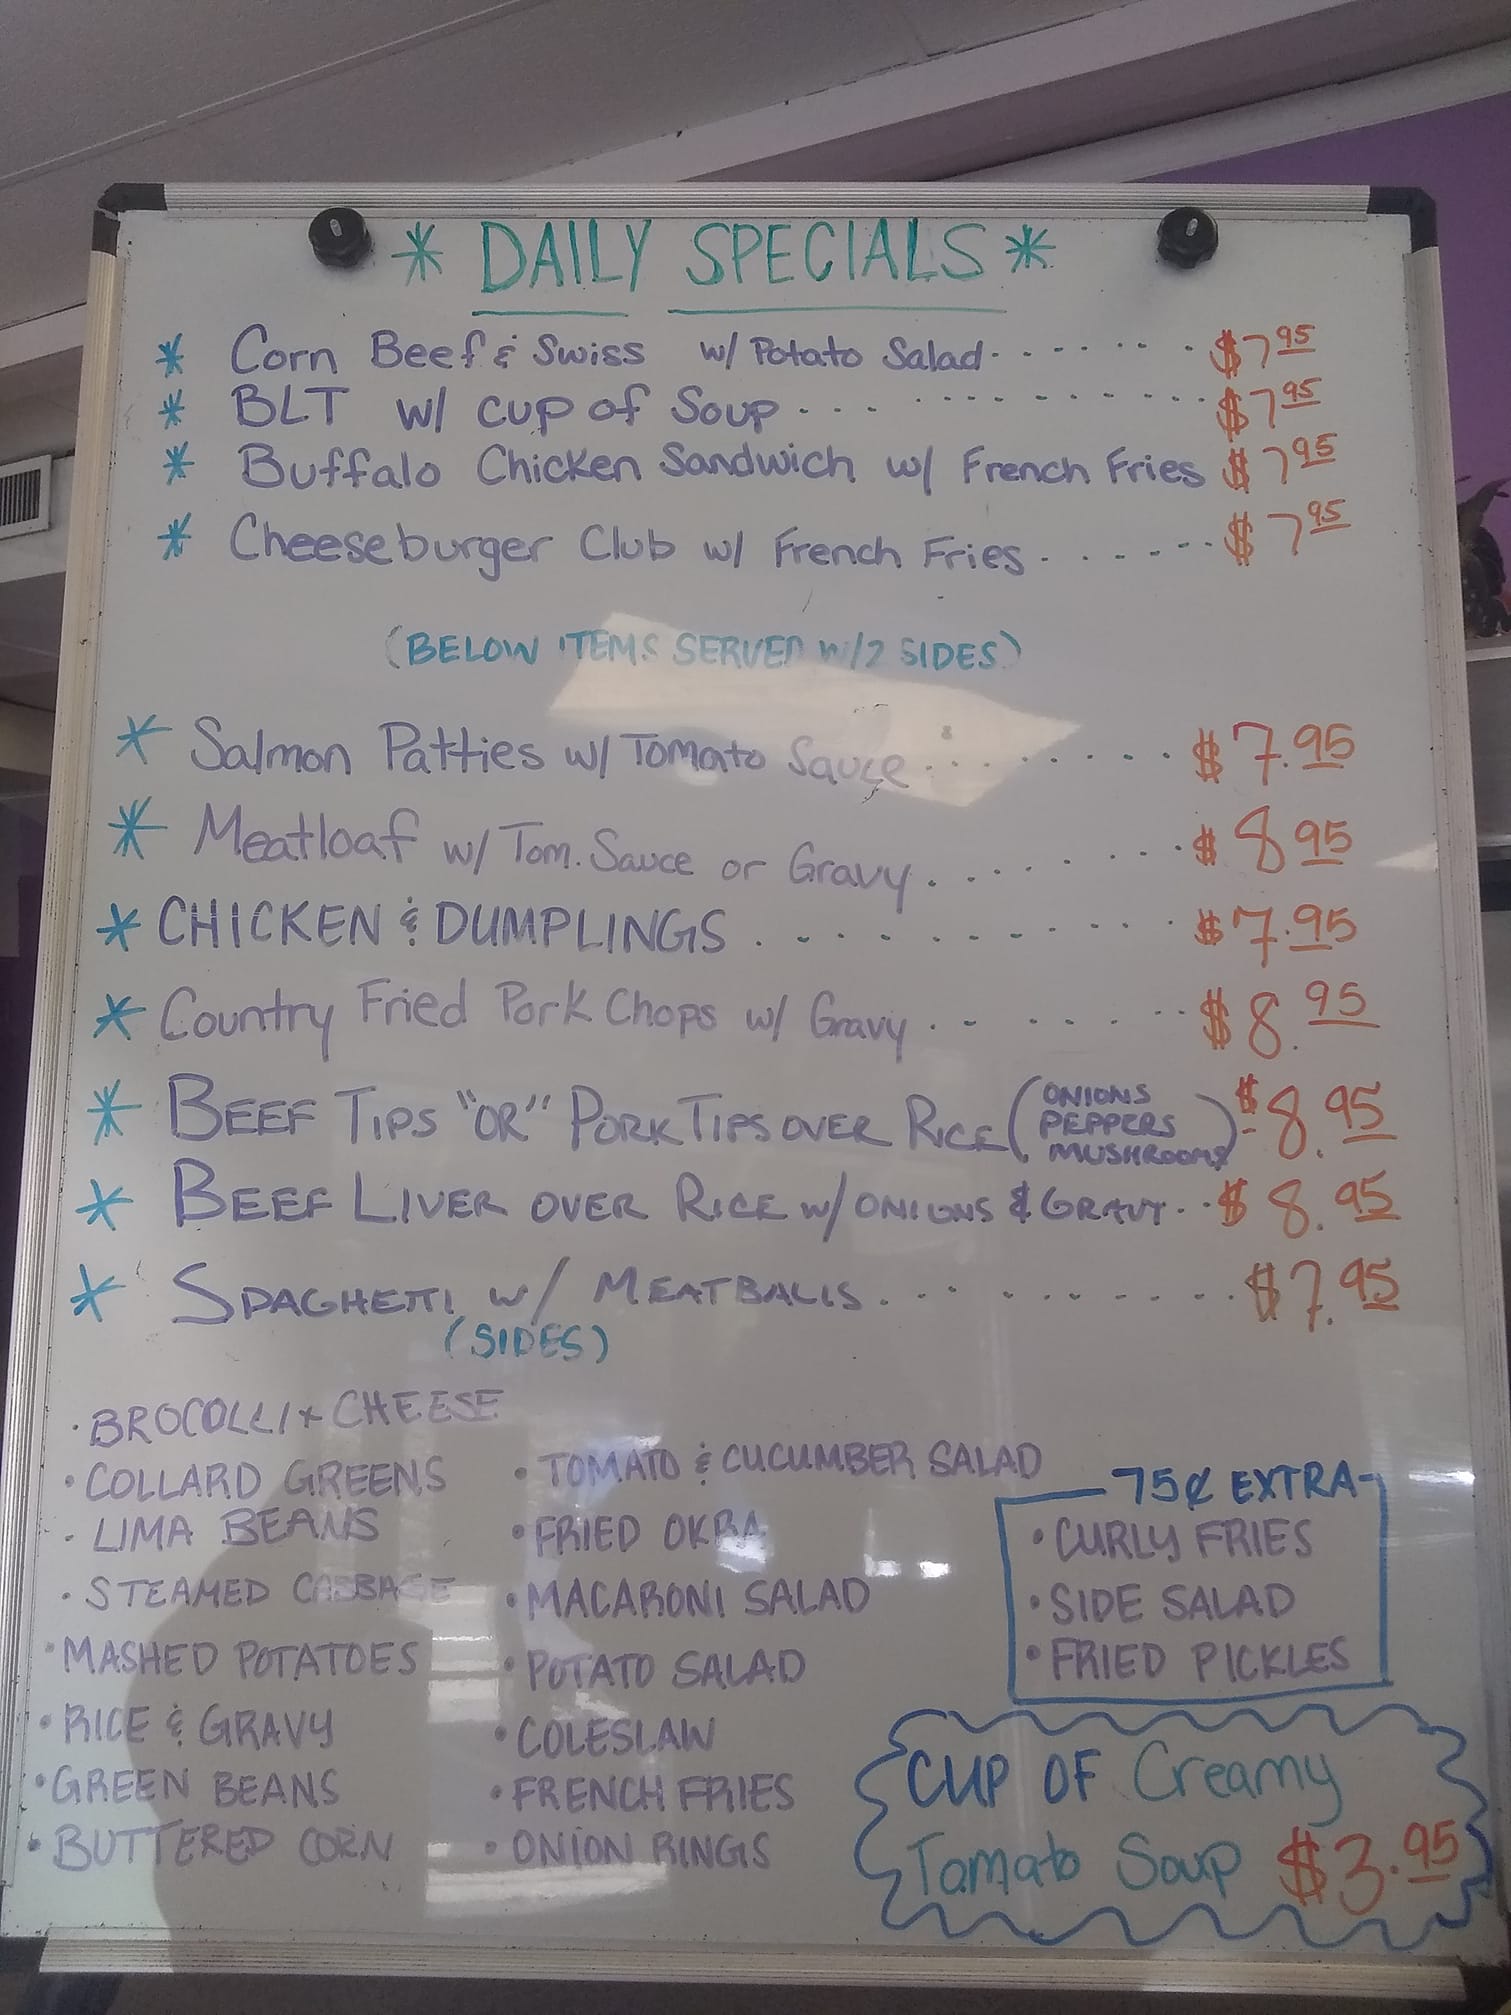 * DAILY SPECIALS *
* Corn Beef & Swiss w/ Potato Salad $7.95
* BLT w/ cup of Soup $7.95
* Buffalo Chicken Sandwich w/ French Fries $7.95
* Cheeseburger Club w/ French Fries $7.95
(BELOW ITEMS SERVED w/2 SIDES)
* Salmon Patties w/ Tomato Sauce $7.95
* Meatloaf w/ Tom. Sauce or Gravy $8.95
* CHICKEN & DUMPLINGS $7.95
* Country Fried Pork Chops w/ Gravy $8.95
* BEEF TIPS "OR" PORK TIPS OVER RICE (ONIONS PEPPERS MUSHROOMS) $8.95
* BEEF LIVER OVER RICE w/ ONIONS & GRAVY $8.95
* SPAGHETTI w/ MEATBALLS $7.95
(SIDES)
· BROCOLLI + CHEESE
· COLLARD GREENS
· LIMA BEANS
· STEAMED CABBAGE
· MASHED POTATOES
· RICE & GRAVY
· GREEN BEANS
· BUTTERED CORN
· TOMATO & CUCUMBER SALAD
· FRIED OKRA
· MACARONI SALAD
· POTATO SALAD
· COLESLAW
· FRENCH FRIES
· ONION RINGS
75¢ EXTRA
· CURLY FRIES
· SIDE SALAD
· FRIED PICKLES
CUP OF Creamy
Tomato Soup $3.95